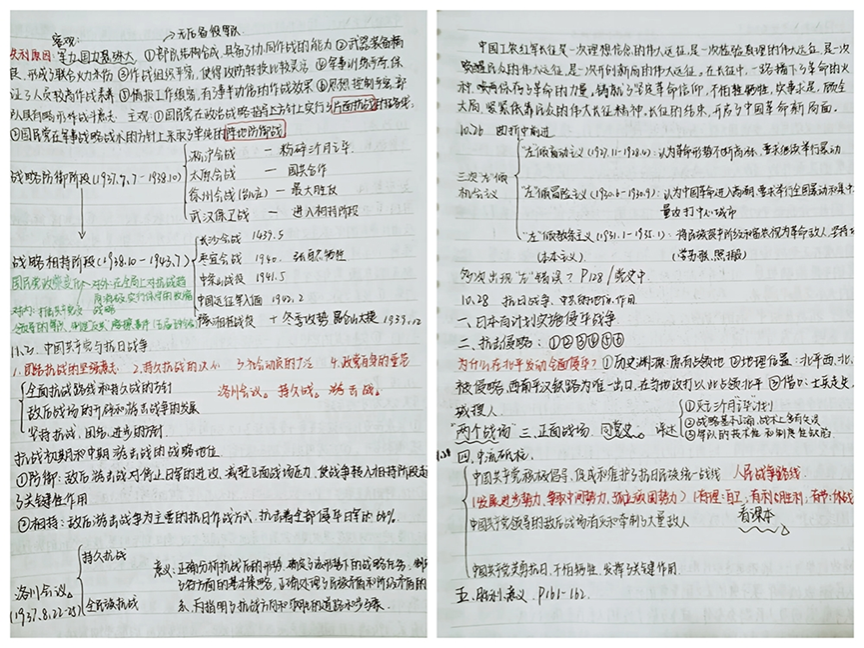 客观:
→无后备役军队
失利原因: 军力国力悬殊大 ①部队结构合成,具备了协同作战的能力 ②武器装备精
良,形成了联合火力打击 ③作战组织严密,使得攻防转换比较灵活 ④军事训练
证了人员较高作战素养 ⑤情报工作细密,有了事半功倍的作战效果 ⑥思想控制
队具有顽强作战斗意志 主观: ①国民党在政治战略指导上方针上实行了片面抗战的路线;
②国民党在军事战略战术的方针上采取了单纯的阵地防御战
战略防御阶段(1937.7.7-1938.10)
淞沪会战 — 粉碎三个月亡华
太原会战 — 国共合作
徐州会战(台儿庄) — 最大胜战
武汉保卫战 — 进入相持阶段
战略相持阶段(1938.10-1943.7)
长沙会战 1939.5
枣宜会战 1940. 张自忠牺牲
中条山战役 1941.5
中国远征军入缅 1942.2
冬季攻势 昆仑山大捷 1939.12
国民党政策变化
对外: 在全局上对抗战趋
11.2. 中国共产党与抗日战争
1.团结抗战的坚强意志 2.持久抗战的 3. 4.政党自身的
全面抗战路线和持久战的方针
洛川会议。持久战。游击战。
敌后战场的开辟和游击战争的发展
坚持抗战、团结、进步的方针
抗战初期和中期游击战的战略地位
①防御: 敌后游击战对停止日军的进攻、减轻正面战场压力、使战争转入相持阶段起
了关键性作用
②相持: 敌后游击战争为主要的抗日作战方式,抗击着全部侵华日军的
洛川会议。
(1937.8.22-25)
持久抗战
全民族抗战
意义: 正确分析抗战后的形势、确定了新形势下的战略任务、制定
了各方面的基本策略,正确处理了民族方面和阶级方面的
系、为指明了抗战方向和取胜的道路
中国工农红军长征是一次理想信念的伟大远征,是一次检验真理的伟大远征,是一次
唤醒民众的伟大远征,是一次开创新局的伟大远征。在长征中,一路播下了革命的火
种,保存了革命的力量,铸就了坚定革命信仰,不怕牺牲,实事求是,顾全
大局,紧紧依靠人民的伟大长征精神。长征的结束,开启了中国革命新局面。
10.26 曲折中前进
三次“左”倾
机会主义
“左”倾盲动主义(1927.11-1928.4): 认为革命形势不断高涨、要求继续举行暴动
“左”倾冒险主义(1930.6-1930.9): 认为中国革命进入高潮,要求举行全国暴动和集中
量攻打中心城市
“左”倾教条主义(1931.1-1935.1): 将民族资产阶级和富农视为革命敌人、坚持
(本本主义)
(学苏俄、照搬)
多次出现“左”错误? P128/党史中.
10.28 抗日战争、中共的地位、作用
一、日本有计划实施侵华战争.
二、抗击侵略: ①②③④⑤⑥
为什么在北平发动全面侵华? ①历史渊源: 原有占领地 ②地理位置: 北平西、北、
被侵略,西南平汉铁路为唯一出口,在当地攻打以此占领北平 ③借口: 士兵走失、
“两个战场” 三、正面战场. 国民党。 评述
①灭亡三个月“亡华”计划
②战略基本正确、战术上多有失误
③军队的战术性和制度性缺陷
11.2 四、中流砥柱.
中国共产党积极倡导、促成和维护了抗日民族统一战线 人民战争路线
(发展进步势力、争取中间势力、孤立顽固势力)(有理: 自卫、有利: 胜利、有节: 休战)
中国共产党领导的敌后战场消灭和牵制了大量敌人 看课本
中国共产党英勇抗日、不怕牺牲、发挥了关键作用
五、胜利意义. P161-162.